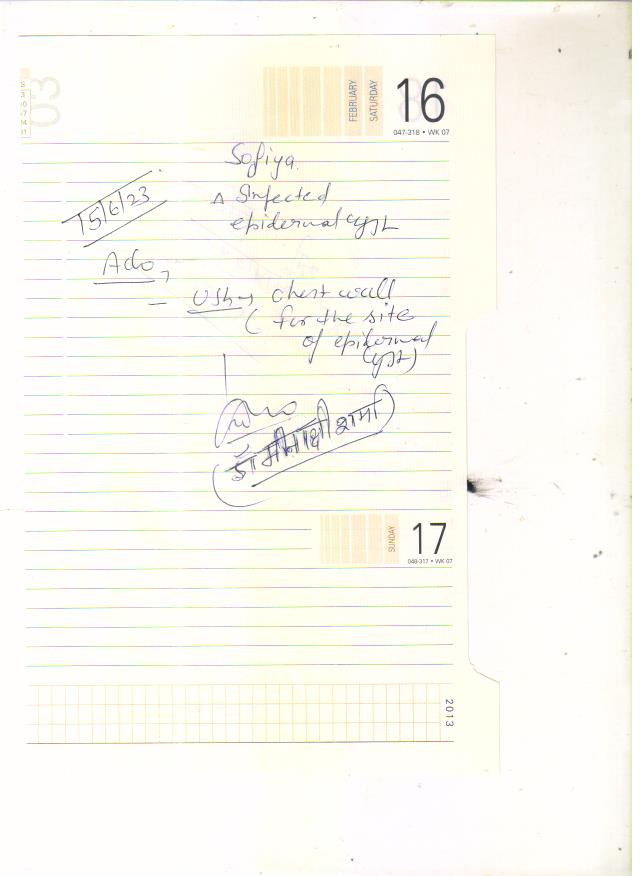 FEBRUARY
SATURDAY
16
047-318 • WK 07
03
Sofiya
15/6/23
Δ Infected
epidermal cyst
Adv,
- USG → chest wall
( for the site
of epidermal
cyst)
(डॉ मीनाक्षी शर्मा)
SUNDAY
17
048-317 • WK 07
2013